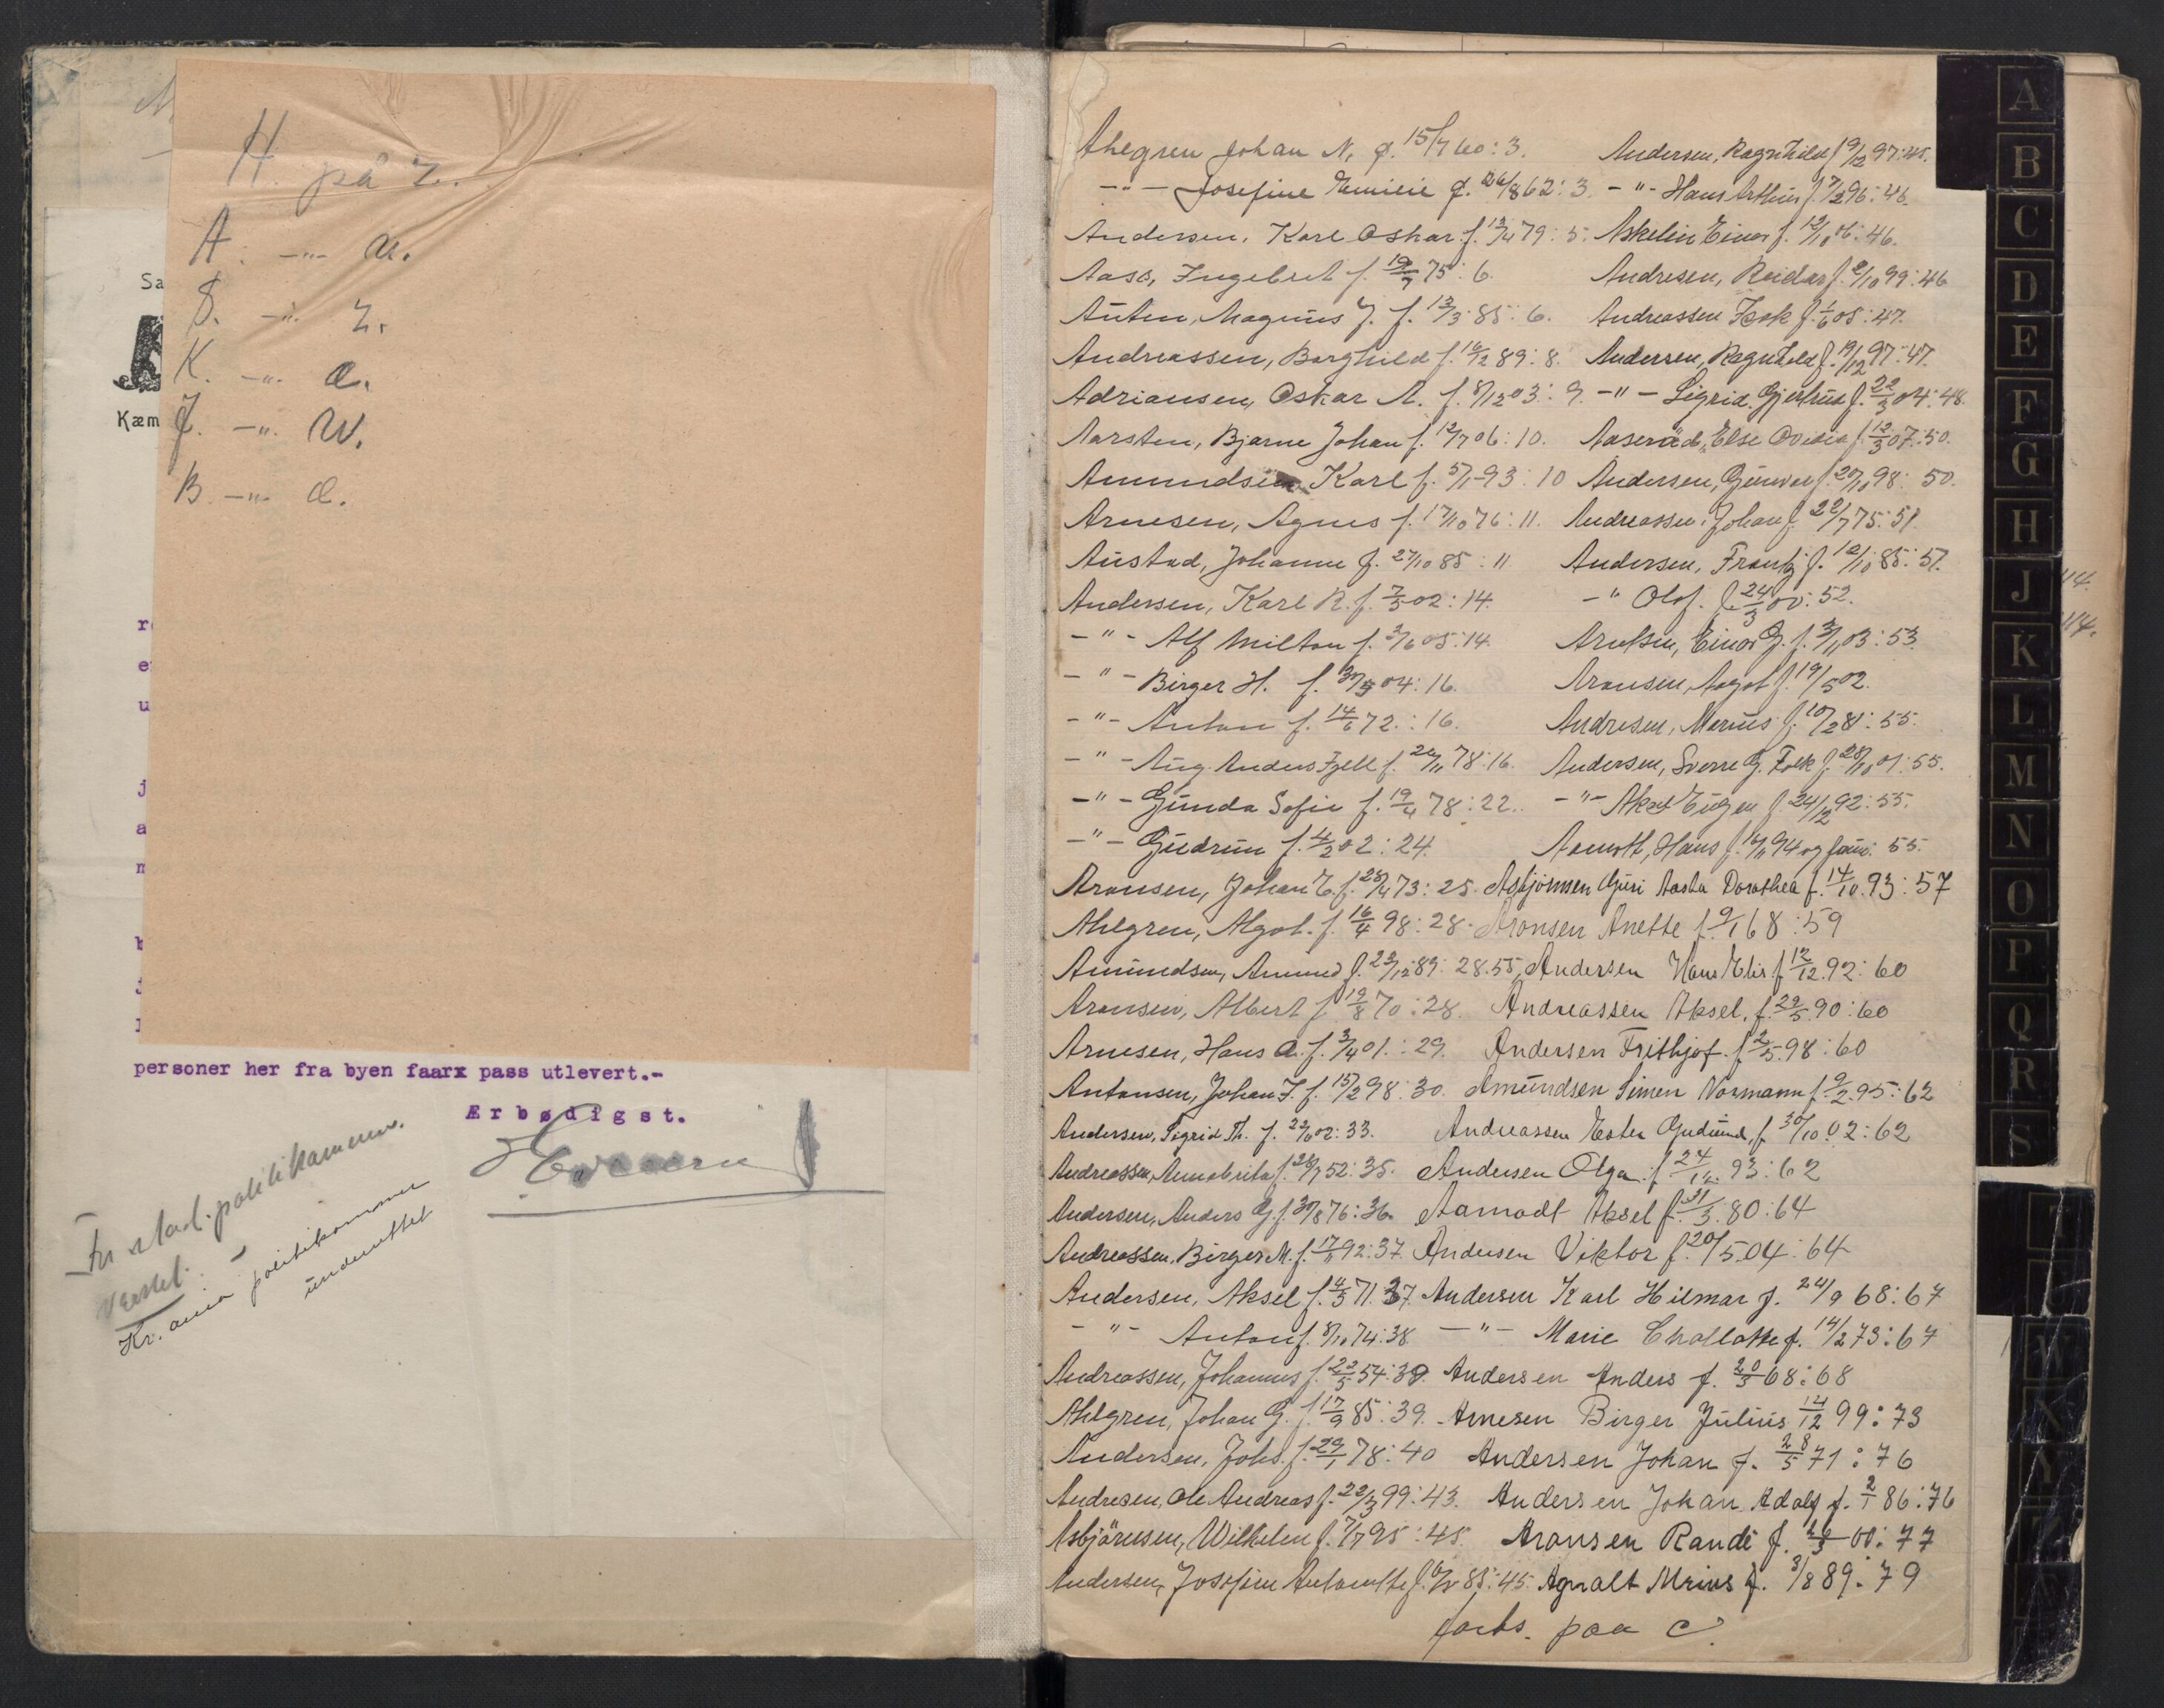 H. på Z.
A. -"- U.
S. -"- Z.
K. -"- Q.
J. -"- W.
B. -"- Q.
Sa
Kæm
personer her fra byen faarx pass utlevert.-
Ærbødigst.
politikammer
Kr.ania politikammer
underrettet
Ahlgren Johan N. f. 15/7 60: 3.
-"- Josefine Emilie f. 26/8 62: 3.
Andersen, Karl Oskar f. 13/4 79: 5.
Aass, Ingebret f. 19/7 75: 6.
Auten, Magnus J. f. 13/3 85: 6.
Andreassen, Borghild f. 16/12 89: 8.
Adriansen, Oskar A. f. 8/12 03: 9.
Aarsten, Bjarne Johan f. 12/7 06: 10.
Amundsen Karl f. 5/1 93: 10
Arnesen, Agnes f. 17/10 76: 11.
Austad, Johanne f. 27/10 85: 11
Andersen, Karl R. f. 7/5 02: 14.
-"- Alf Milton f. 3/6 05: 14.
-"- Birger H. f. 04: 16.
-"- Anton f. 14/6 72: 16.
-"- Aug. Anders Fjell f. 26/11 78: 16.
-"- Gunda Sofie f. 19/4 78: 22.
-"- Gudrun f. 4/2 02: 24.
Aronsen, Johan E. f. 28/4 73: 25.
Ahlgren, Algot f. 16/4 98: 28.
Amundsen, Amund f. 23/12 89: 28.55,
Aronsen, Albert f. 19/8 70: 28.
Arnesen, Hans A. f. 3/4 01: 29.
Antonsen, Johan F. f. 15/2 98: 30.
Andersen, Sigrid Th. f. 02: 33.
Andreassen, Annabrita f. 52: 35.
Andersen, Anders G. f. 30/8 76: 36.
Andreassen, Birger M. f. 92: 37.
Andersen, Aksel f. 4/3 71. 37.
-"- Anton f. 8/11 74: 38
Andreassen, Johannes f. 22/5 54: 39.
Ahlgren, Johan G. f. 17/9 85: 39.
Andersen, Johs. f. 29/1 78: 40
Andresen, Ole Andreas f. 22/3 99: 43.
Asbjörnsen, Wilhelm f. 7/7 95: 45.
Andersen, Josefine Antonette f. 85: 45.
Andersen, Ragnhild f. 19/12 97: 45.
-"- Hans Arthur f. 7/2 96: 46.
Askelin Einar f. 06: 46.
Andresen, Reidar f. 2/10 99: 46
Andreassen f. 1/6 05: 47.
Andersen, Ragnhild f. 19/12 97: 47.
-"- Sigrid Gjertrud f. 22/3 04: 48.
Aaserad, Else Ovidia f. 12/3 07: 50.
Andersen, Gunvor f. 20/10 98: 50.
Andreassen, Johan f. 22/7 75: 51.
Andersen, Frantz f. 12/10 85: 51.
-"- Olof. f. 24/3 00: 52.
Einar G. f. 3/11 03: 53.
Aronsen, Aagot f. 19/5 02.
Andresen, Marius f. 10/2 81: 55.
Andersen, Sverre G. Falk f. 28/10 01: 55.
-"- Aksel Eugen f. 24/12 92: 55.
Hans f. 94 og fam: 55.
Asbjörnsen Guri Aasta Dorothea f. 14/10. 93: 57
Aronsen Anette f. 9/1 68: 59
Andersen Hans Elis f. 12/12. 92: 60
Andreassen Aksel. f. 29/5 90: 60
Andersen Frithjof. f. 2/5. 98: 60
Amundsen Simen Normann f. 9/2. 95: 62
Andreassen Ester Gudrund, f. 30/10 02: 62
Andersen Olga f. 24/12. 93: 62
Aamodt Aksel f. 31/3. 80: 64
Andersen Viktor f. 20/5. 04: 64
Andersen Karl Hilmar f. 24/9 68: 67
-"- Marie Challotte f. 14/2 73: 67
Andersen Anders f. 20/3 68: 68
Arnesen Birger Julius 14/12 99: 73
Andersen Johan f. 28/5 71: 76
Andersen Johan Adolf f. 2/1 86: 76
Aronsen Randi f. 26/3 00: 77
Agnalt Mrius f. 3/8 89: 79
forts. paa C.
A
B
C
D
E
F
G
H
J
K
L
M
N
O
P
Q
R
S